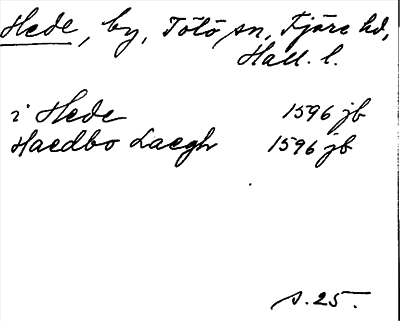 Hede, by, Tölö sn, Fjäre hd,
Hall. l.
i Hede 1596 jb
Haedbo Laegh 1596 jb
s. 25.